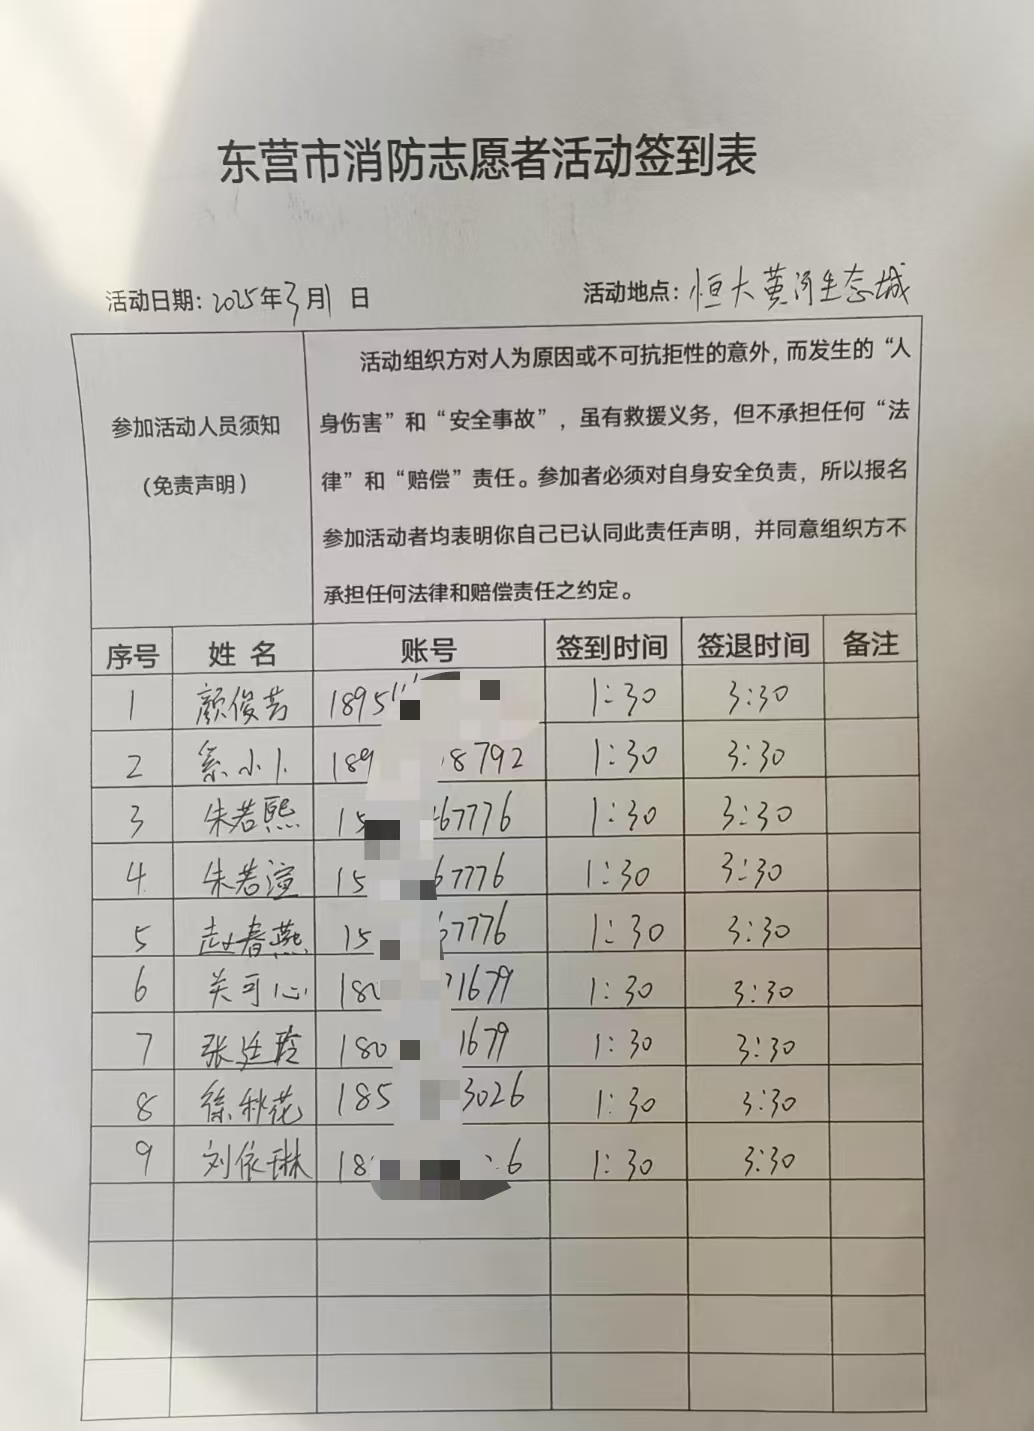 东营市消防志愿者活动签到表
活动日期：2025年3月1日 活动地点：恒大黄河生态城
参加活动人员须知
（免责声明）
活动组织方对人为原因或不可抗拒性的意外，而发生的“人
身伤害”和“安全事故”，虽有救援义务，但不承担任何“法
律”和“赔偿”责任。参加者必须对自身安全负责，所以报名
参加活动者均表明你自己已认同此责任声明，并同意组织方不
承担任何法律和赔偿责任之约定。
序号 姓名 账号 签到时间 签退时间 备注
1 颜俊芳 1895 1:30 3:30
2 小 189 8792 1:30 3:30
3 朱若熙 15 67776 1:30 3:30
4 朱若渲 15 67776 1:30 3:30
5 赵春燕 15 7776 1:30 3:30
6 关可心 180 1679 1:30 3:30
7 张廷玲 180 1679 1:30 3:30
8 徐秋花 185 3026 1:30 3:30
9 刘依琳 18 6 1:30 3:30